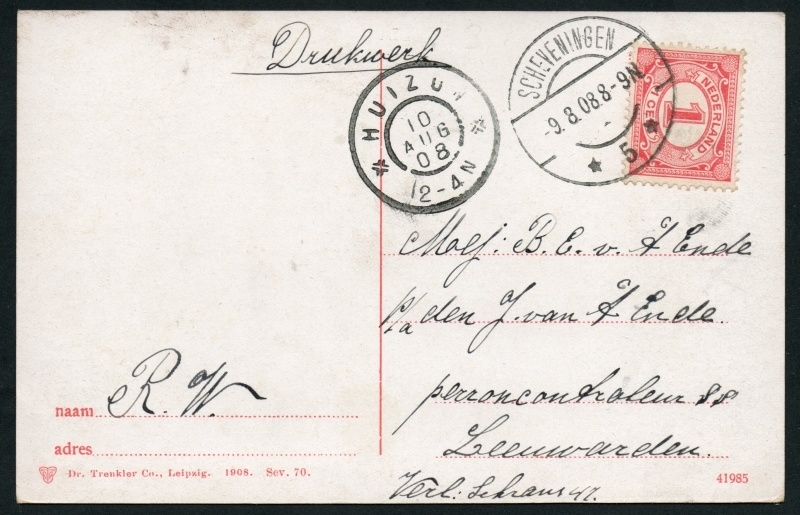 Drukwerk
HUIZUM
10
AUG
08
12-4N
SCHEVENINGEN
-9.8.08 8-9N
5
NEDERLAND
1
1 CENT
Mej: B. E. v. 't Ende
p/a den J. van 't Ende.
perroncontroleur SS
Leeuwarden.
Verl: Schrans 47.
R. W.
naam
adres
Dr. Trenkler Co., Leipzig. 1908. Sev. 70.
41985